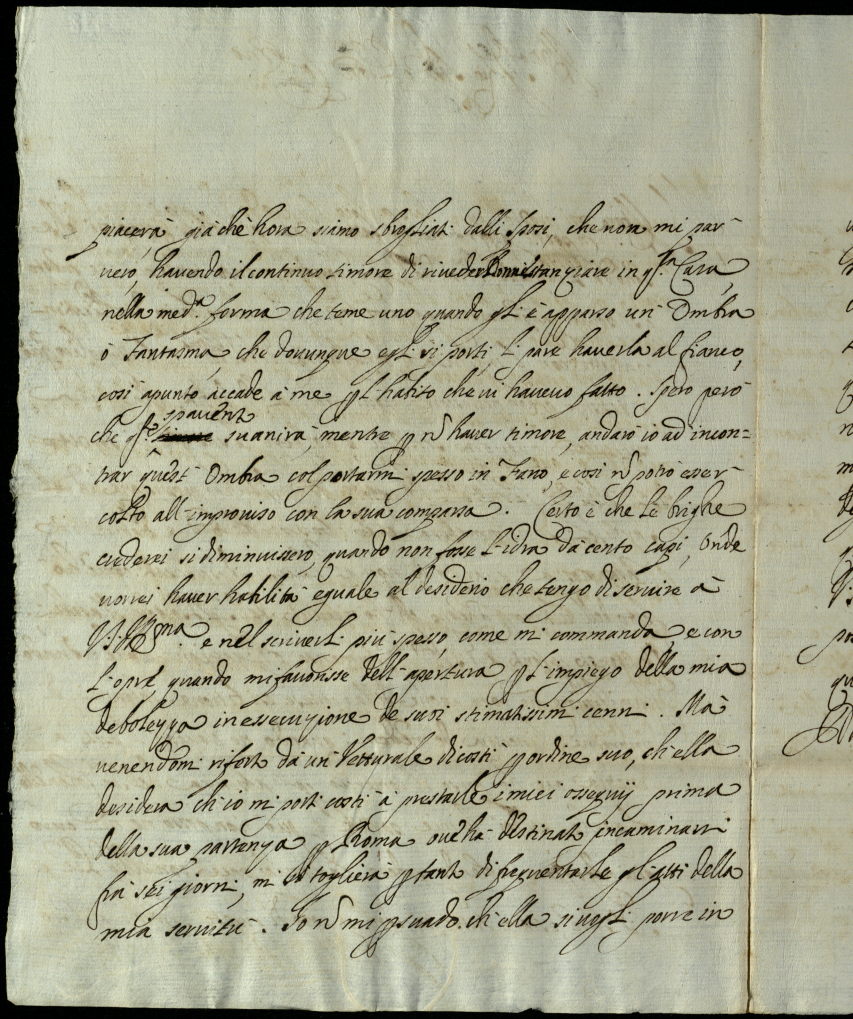 piacerà già che hora siamo sbrogliati dalli sposi, che non mi par
vero, havendo il continuo timore di riveder mangiare in q.sta Casa,
nella med.a forma che teme uno quando gli è apparso un' Ombra
ò Fantasma, che dovunque egli si porti li pare haverla al fianco,
così apunto accade à me p l'habito che vi havevo fatto. Spero però
che q.to spavento svanirà, mentre p nõ haver timore, andarò io ad incon=
trar quest' Ombra col portarmi spesso in Fano, e così nõ potrò esser
colto all'improviso con la sua comparsa. Certo è che le brighe
crederei si diminuissero, quando non fosse l'idra dà cento capi, Onde
vorrei haver habilità eguale al desiderio che tengo di servire à
V.S. Ill.ma e nel scriverli più spesso, come mi commanda e con
l'opre quando mi favorisse dell'apertura p l'impiego della mia
debolezza in essecuzione de suoi stimatissimi cenni. Mà
venendomi riferto dà un Vetturale di costì p ordine suo, ch'ella
desidera ch'io mi porti costì à prestarle i miei ossequij prima
della sua partenza p Roma ove hà destinato incaminarsi
frà sei giorni, mi si toglierà p tanto di frequentarle gl'atti della
mia servitù. Io nõ mi p̱suado ch'ella si vogli porre in